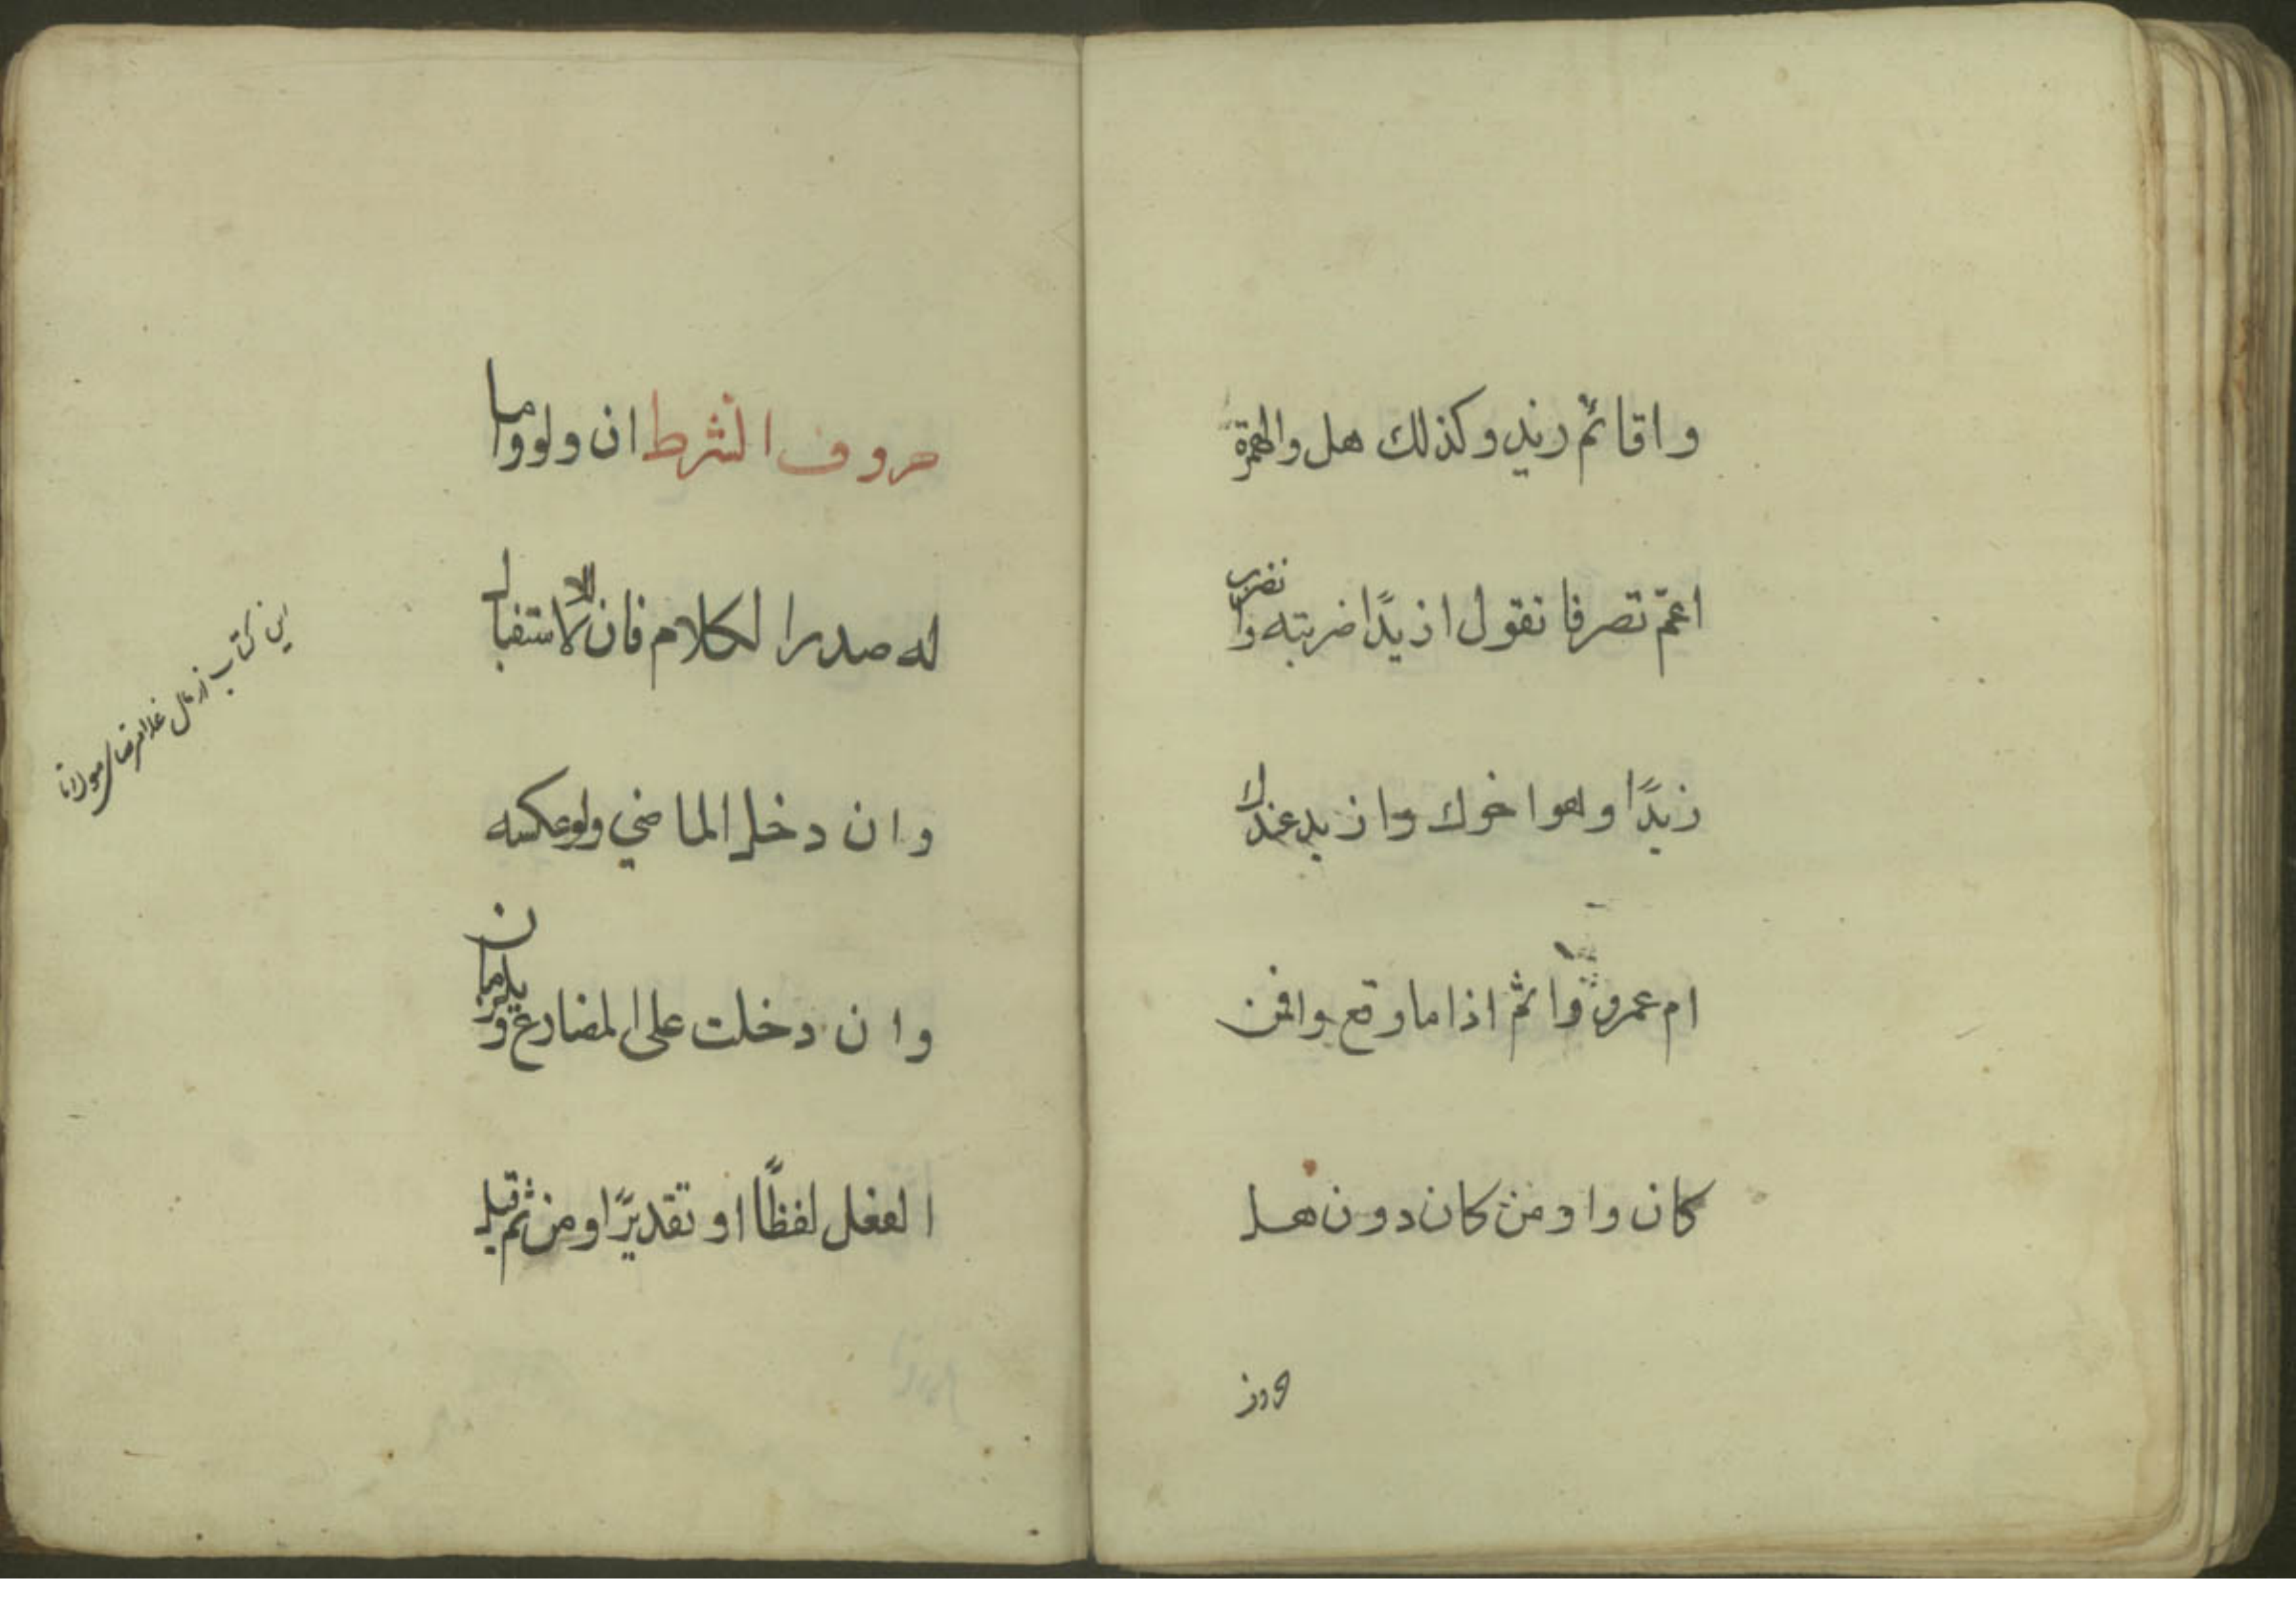 واقائم زيد وكذلك هل والهمزة
اعمّ تصرفا تقول ازيدًا ضربته وا تضرب
زيدًا وهو اخوك وازيد عندك
ام عمرو وا ثمّ اذا ما وقع وافمن
كان واومن كان دون هل
حروف الشرط ان ولو واما
له صدر الكلام فان للاستقبال
وان دخل الماضي ولو عكسه
وان دخلت على المضارع ويلزمان
الفعل لفظًا او تقديرًا ومن ثم قيل
اين كتاب از مال غلامرضاى مولانا